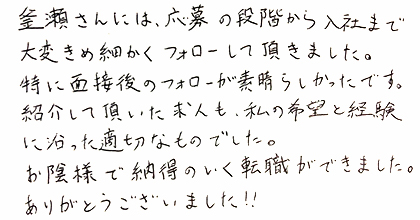 釜瀬さんには、応募の段階から入社まで
大変きめ細かくフォローして頂きました。
特に面接後のフォローが素晴らしかったです。
紹介して頂いた求人も、私の希望と経験
に沿った適切なものでした。
お陰様で納得のいく転職ができました。
ありがとうございました!!